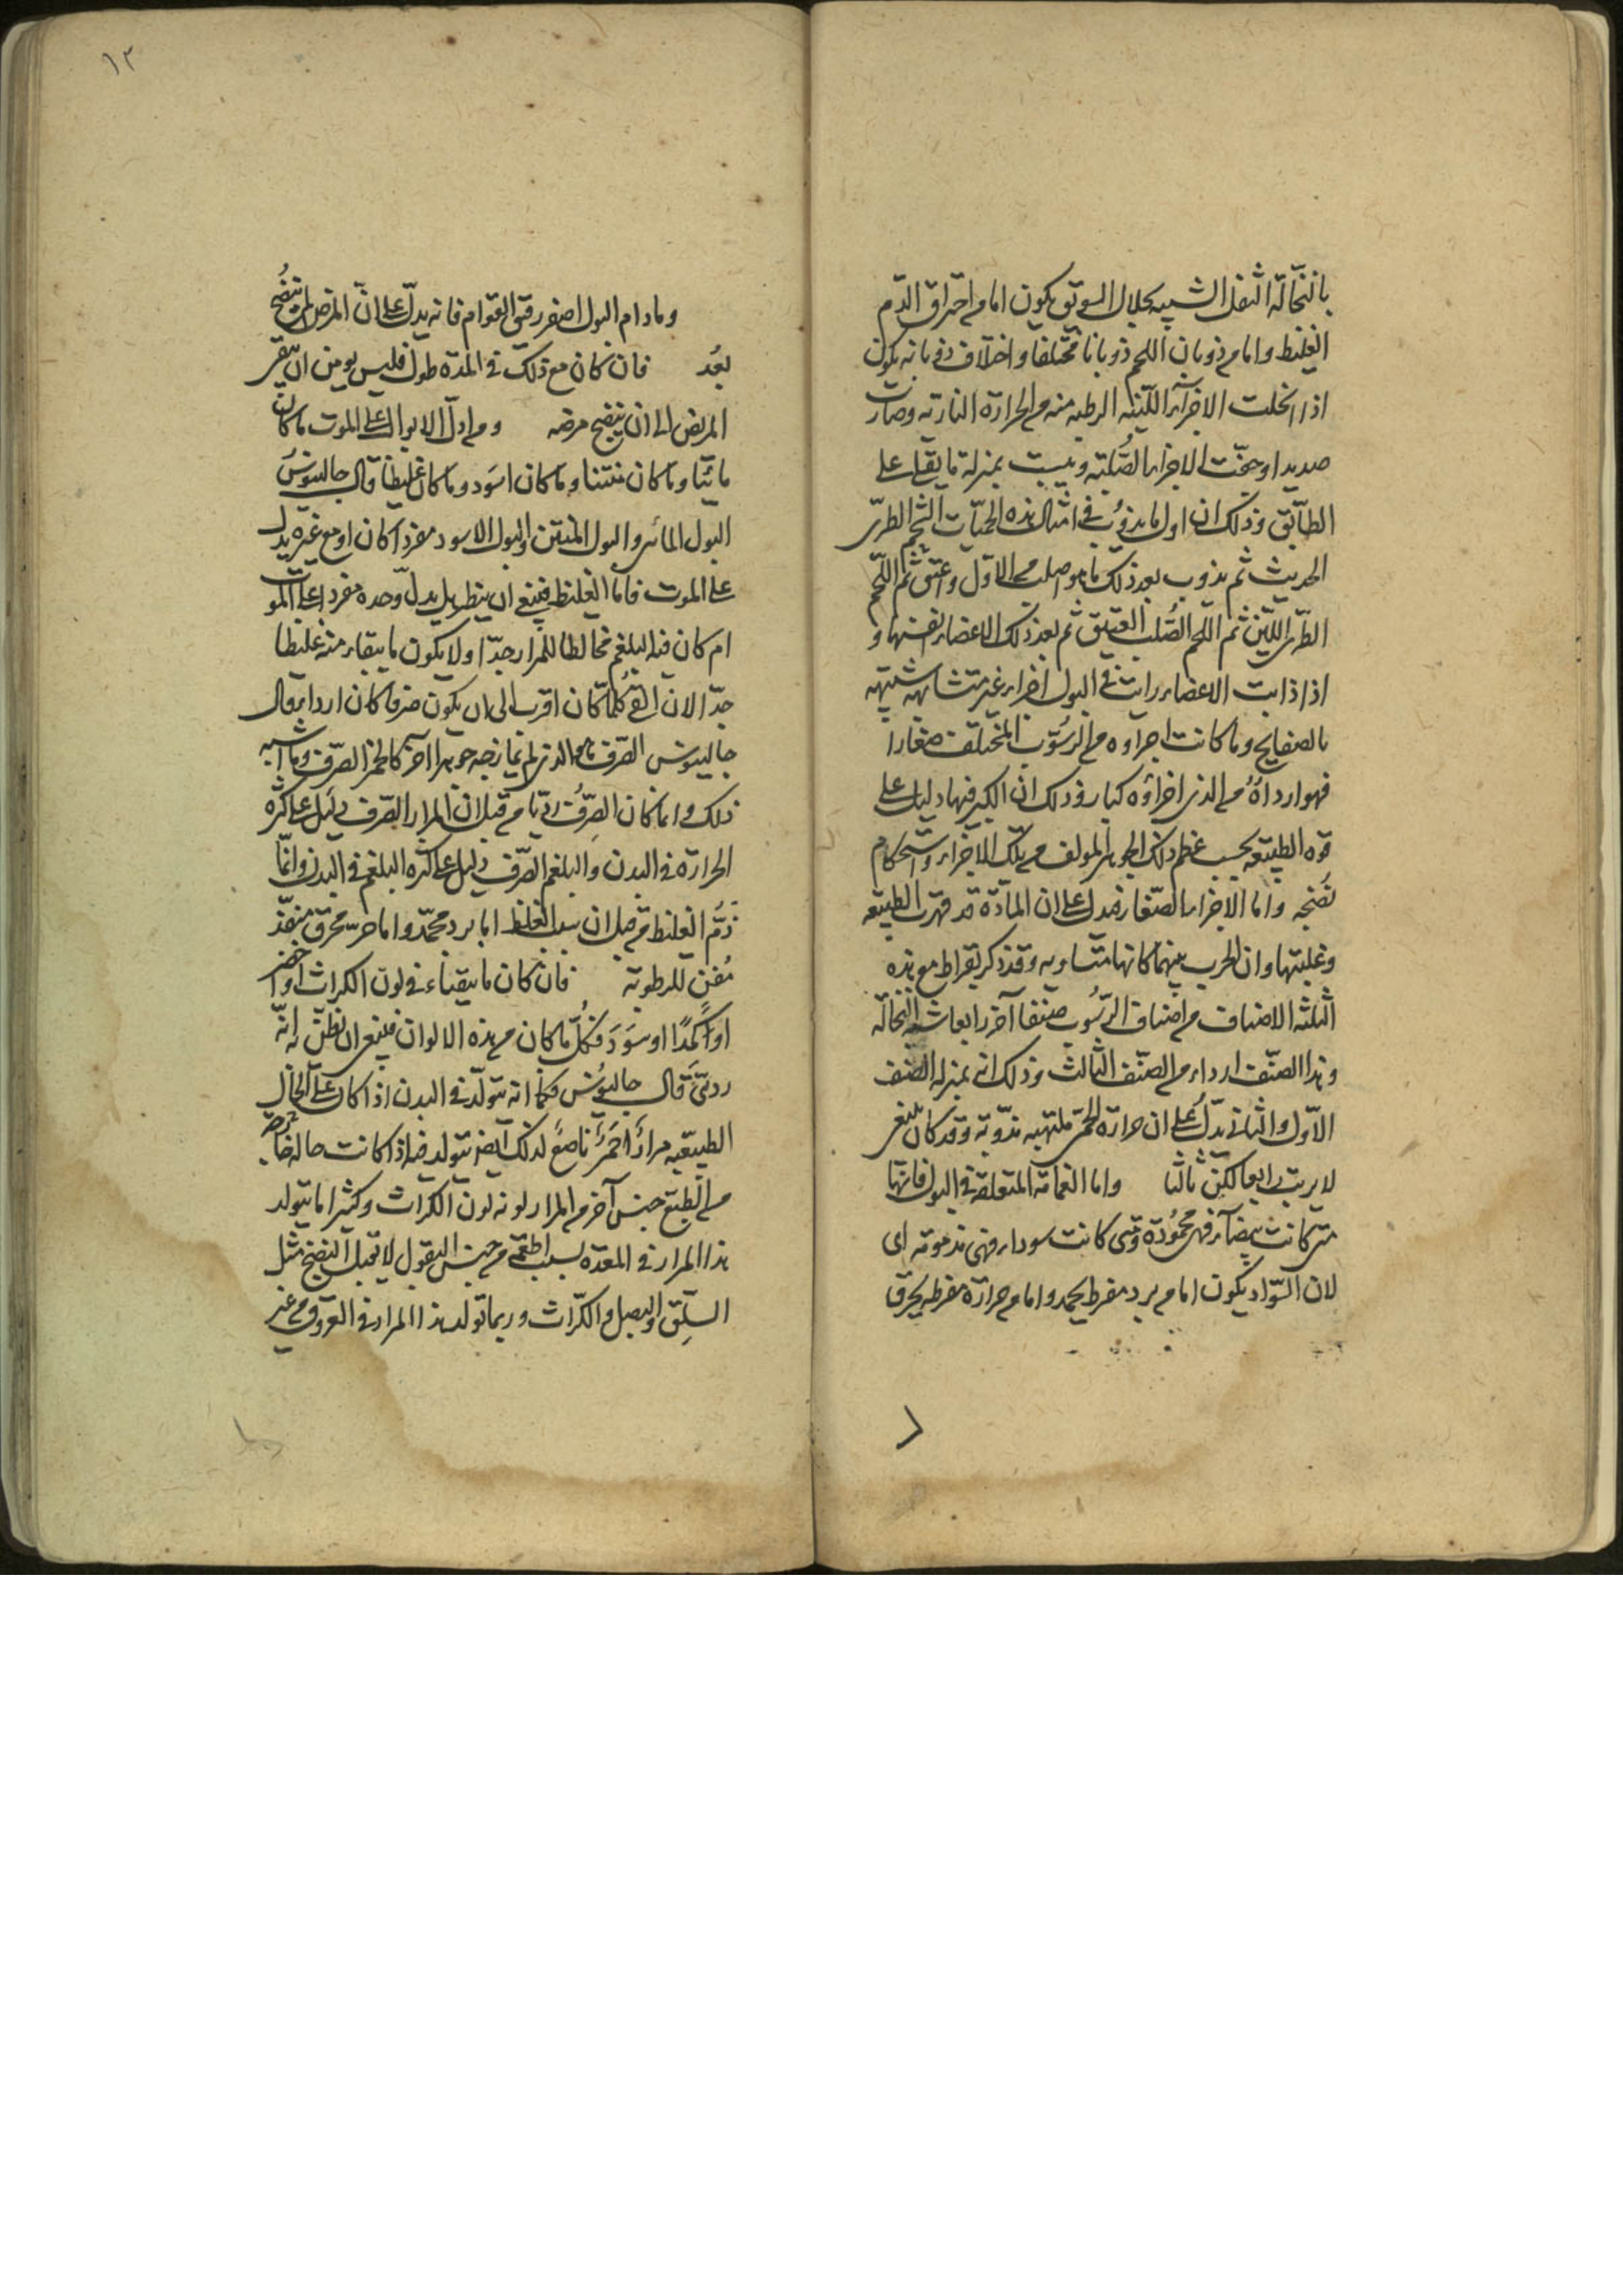 بالنخالة الثفل الشبيه بجلال السويق يكون اما من احتراق الدم
الغليظ واما من ذوبان اللحم ذوبانا مختلفا واختلاف ذوبانه يكون
اذا انحلت الاجزاء اللينه الرطبه منه من الحرارة الناريه وصارت
صديدا وجفت الاجزاء الصلبه ويبست بمنزلة ما يقلى على
الطابق وذلك ان اول ما يذوب في امثال هذه الحميات الشحم الطري
الحديث ثم يذوب بعد ذلك ما هو اصلب من الاول واعتق ثم اللحم
الطري اللين ثم اللحم الصلب العتيق ثم بعد ذلك الاعضاء انفسها و
اذا ذابت الاعضاء رايت في البول اجزاء غير متشابهه شبيهه
بالصفايح وما كانت اجزاوه من الرسوب المختلف صغارا
فهو اردأ من الذي اجزاؤه كبار وذلك ان الكبر فيها دليل على
قوه الطبيعه بحسب عظم ذلك الجوهر المولف من تلك الاجزاء واستحكام
نضجه واما الاجزاء الصغار فتدل على ان المادة قد قهرت الطبيعه
وغلبتها وان الحرب بينهما كانها متساويه وقد ذكر بقراط مع هذه
الثلثه الاصناف من اصناف الرسوب صنفا آخر رابعا شبه النخالة
وهذا الصنف اردا من الصنف الثالث وذلك انه بمنزلة الصنف
الاول والثاني يدل على ان حرارة الحمى ملتهبه مذوبه وقد كان ينبغي
لا يرتب رابعا لكن ثالثا واما الغمامة المتعلقة في البول فانها
متى كانت بيضاء فهي محمودة ومتى كانت سوداء فهي مذمومه اى
لان السواد يكون اما من برد مفرط يجمد واما من حرارة مفرطه يحرق
١٢
وما دام البول اصفر رقيق القوام فانه يدل على ان المرض لم ينضج
بعد فان كان مع ذلك في المدة طول فليس يومن ان يبقى
المريض الى ان ينضج مرضه ومن ادل الابوال على الموت ما كان
مائيا وما كان منتنا وما كان اسود وما كان غليظا قال جالينوس
البول المائى والبول المنتن والبول الاسود مفردا كان او مع غيره يدل
على الموت فاما الغليظ فينبغي ان ينظر هل يدل وحده مفردا على الموت
ام كان فيه البلغم مخالطا للمرار جدا ولا يكون ما يتقيأ منه غليظا
جدا لان القى كلما كان اقرب الى ان يكون صرفا كان اردا قال
جالينوس الصرف ما هو الذي لم يمازجه جوهر آخر كالخمر الصرف وما اشبه
ذلك وانما كان الصرف رديا من قبل ان المرار الصرف دليل على كثرة
الحرارة في البدن والبلغم الصرف دليل على كثره البلغم في البدن وانما
ذم الغليظ من قبل ان سبب الغلظ اما برد مجمد واما حر محرق منفذ
مفن للرطوبه فان كان ما يتقياء في لون الكراث او اخضر
او اكمدا او سود فكل ما كان من هذه الالوان فينبغي ان نظن انه
ردئ قال جالينوس فكما انه يتولد في البدن اذا كان على الحال
الطبيعيه مرار احمر ناصع لذلك ايضا يتولد فيه اذا كانت حاله خارجه
من الطبع جنس آخر من المرار لونه لون الكراث وكثيرا ما يتولد
هذا المرار في المعده بسبب اطعمه من جنس البقول لا تقبل النضج مثل
السلق والبصل والكراث وربما تولد هذا المرار في العروق من غير